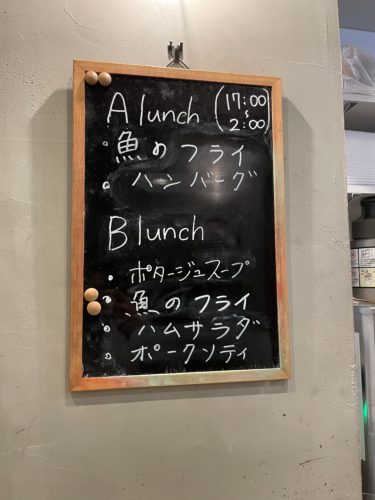 A lunch (17:00
〜
2:00)
・魚のフライ
・ハンバーグ
B lunch
・ポタージュスープ
・魚のフライ
・ハムサラダ
・ポークソティ